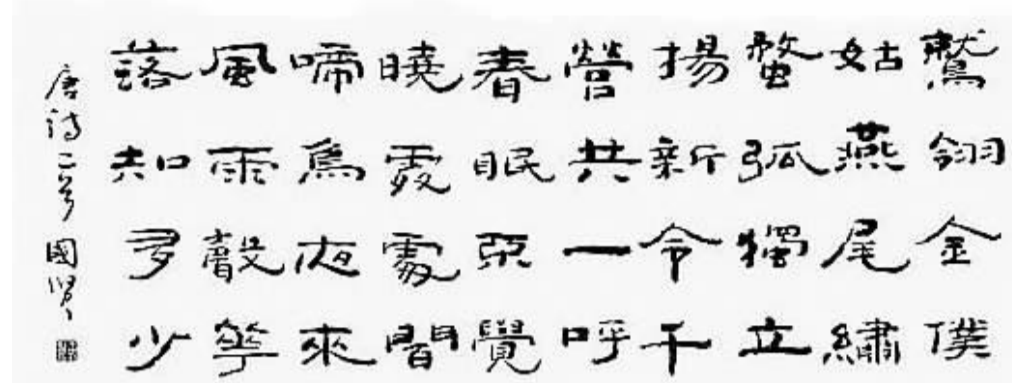 鷲翎金僕
姑燕尾繡
蝥弧獨立
揚新令千
營共一呼
春眠不覺
曉處處聞
啼鳥夜來
風雨聲華
落知多少
唐詩二首 國賢